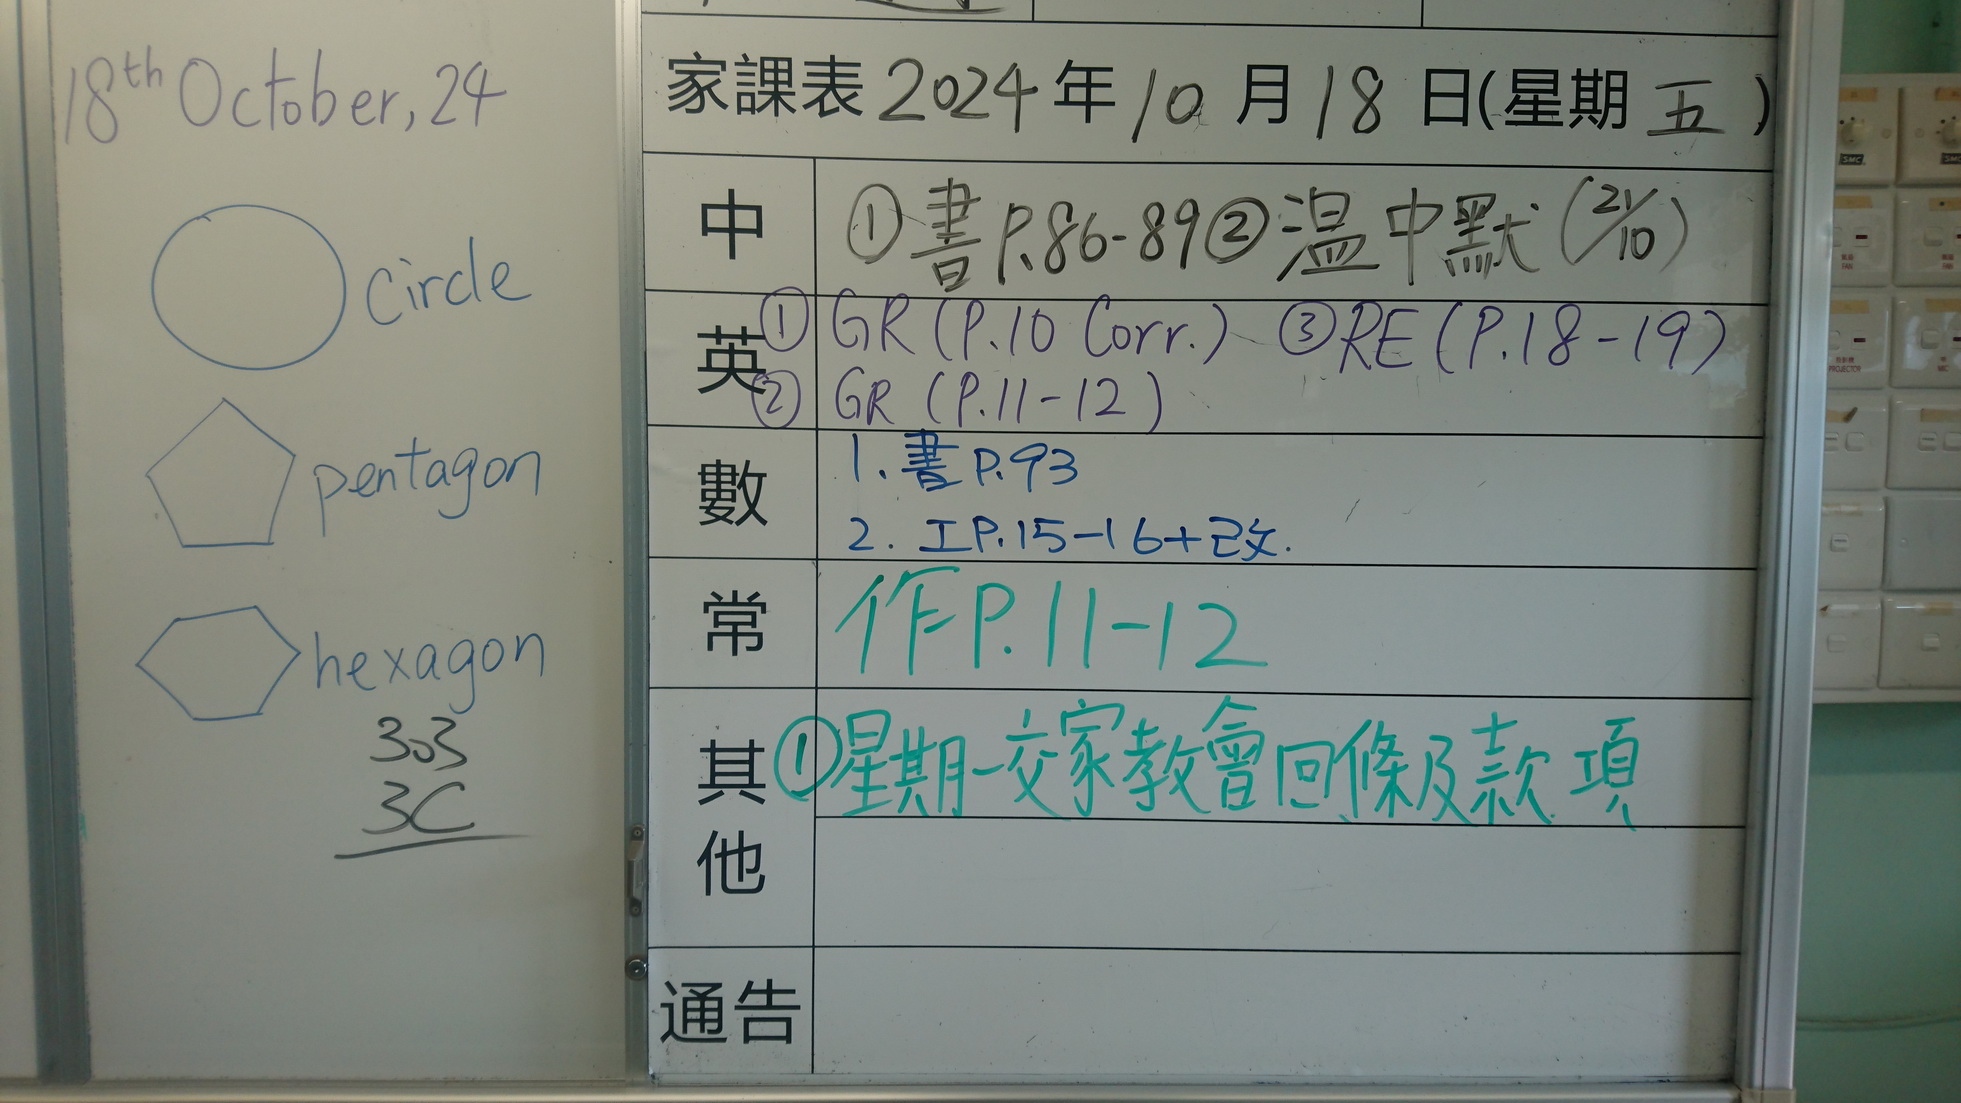 18th October, 24
circle
pentagon
hexagon
303
3C
家課表 2024 年 10 月 18 日(星期 五 )
中
① 書 P.86-89 ② 温中默 (21/10)
英
① GR (P.10 Corr.) ③ RE (P.18-19)
② GR (P.11-12)
數
1. 書 P.93
2. 工P.15-16+改.
常
作 P.11-12
其他
① 星期一交家教會回條及款項
通告
SMC
SMC
FAN
FAN
PROJECTOR
MIC